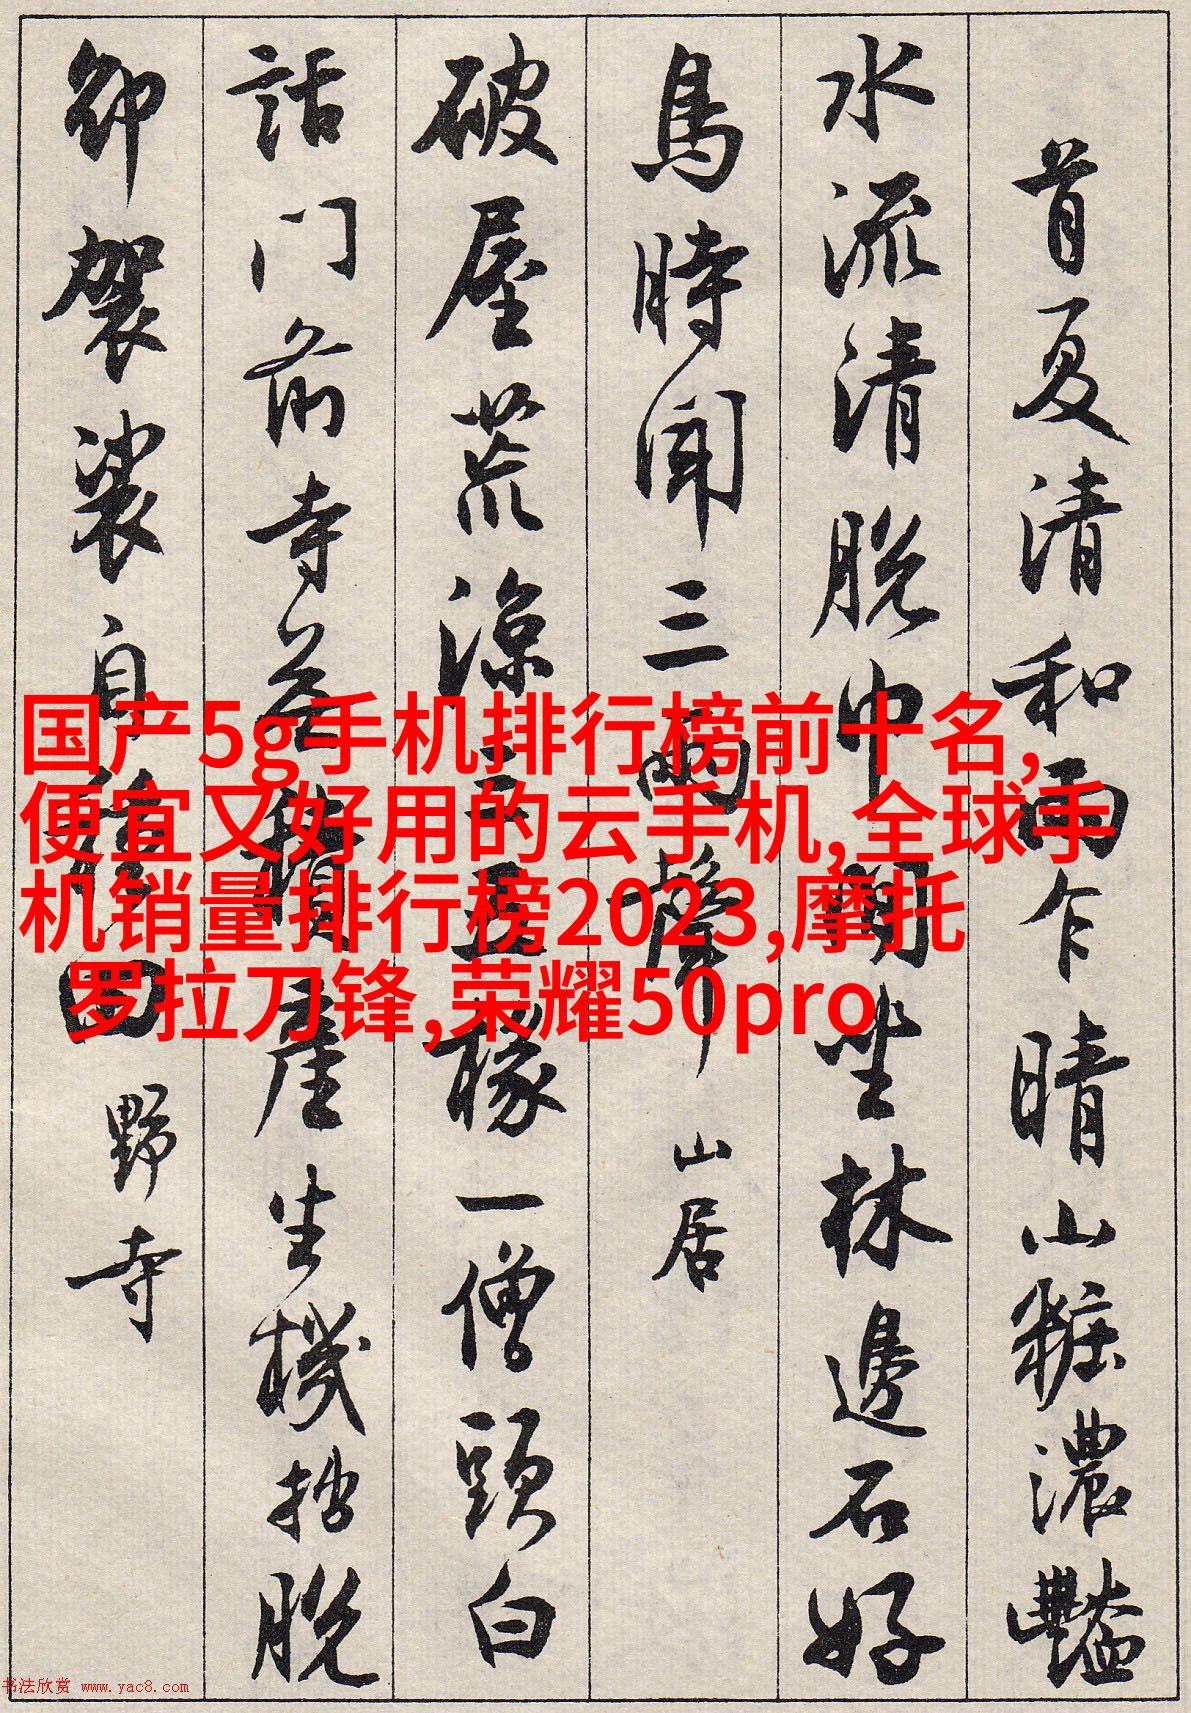 首夏清和雨乍晴山粧濃豔
水流清脱巾閒坐林邊石好
鳥時聞三兩聲 山居
破屋荒涼三五椽一僧頭白
話门前寺無積產生機拙脱
卻袈裟自種田 野寺
国产5g手机排行榜前十名,
便宜又好用的云手机,全球手
机销量排行榜2023,摩托
罗拉刀锋,荣耀50pro
书法欣赏 www.yac8.com